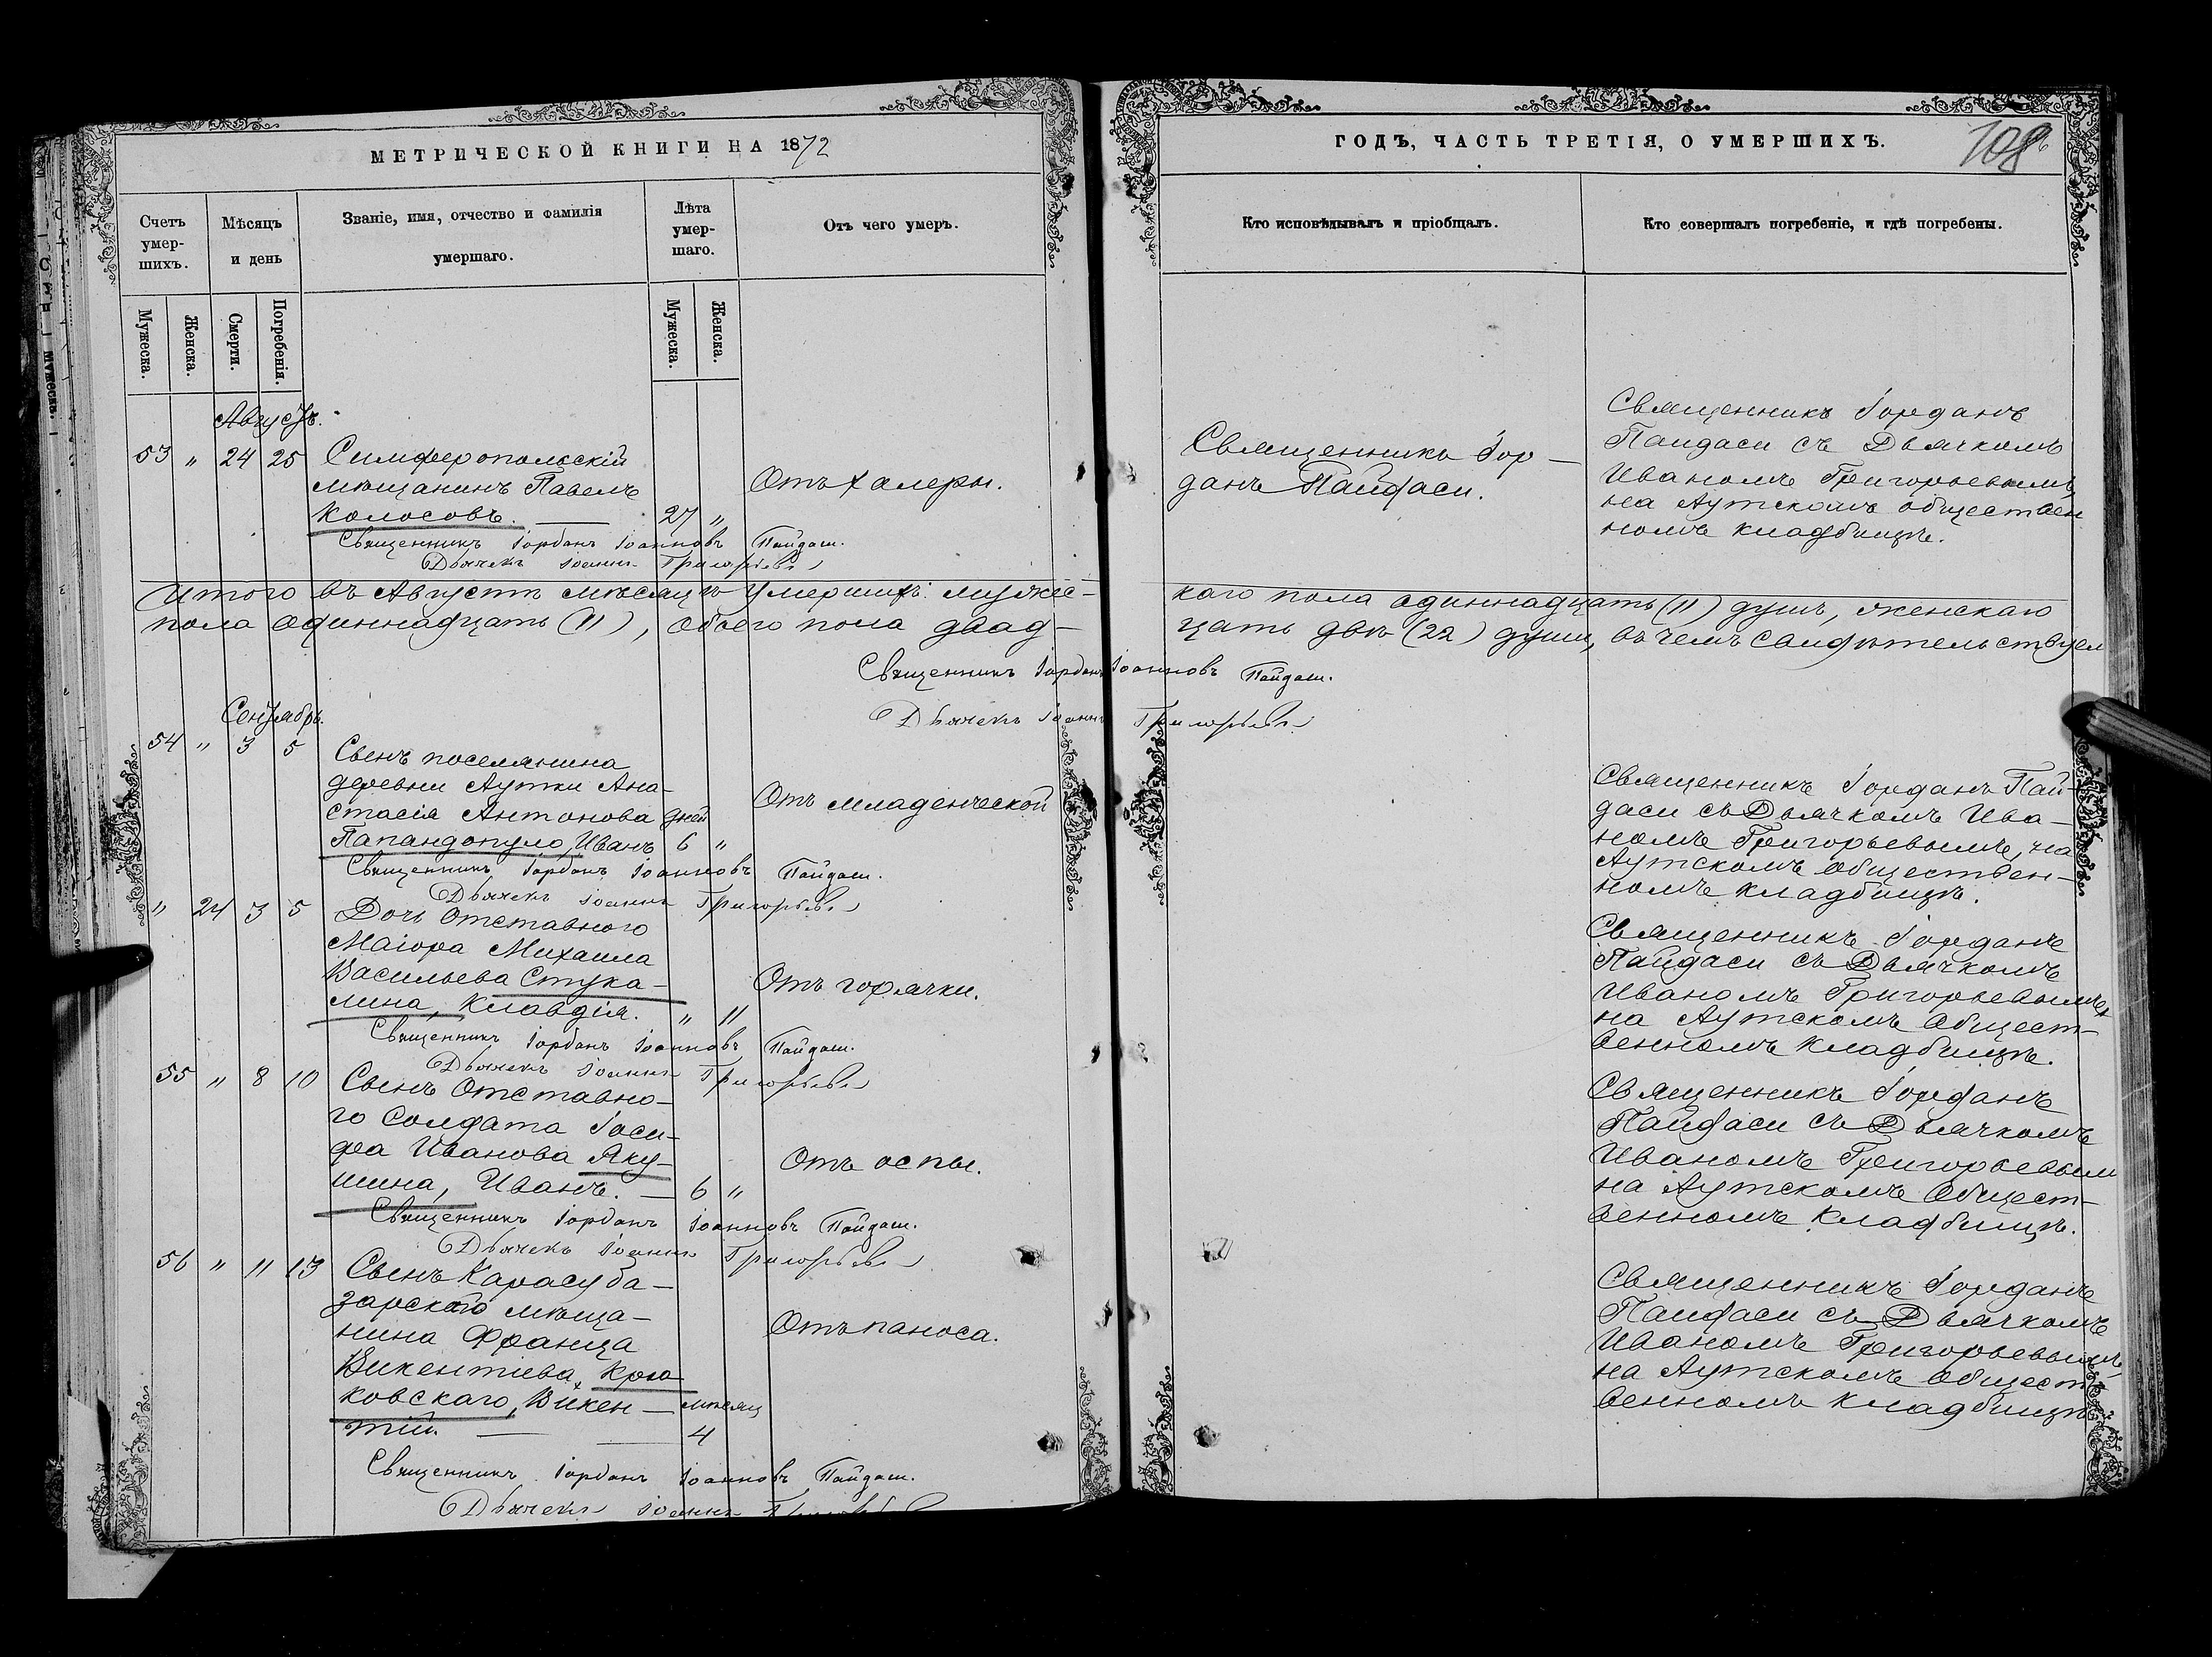 МЕТРИЧЕСКОЙ КНИГИ НА 1872
Счетъ умер-шихъ.
Мѣсяцъ и день
Званіе, имя, отчество и фамилія умершаго.
Лѣта умер-шаго.
Отъ чего умеръ.
Мужеска.
Женска.
Смерти.
Погребенія.
Мужеска.
Женска.
Августъ.
53 " 24 25 Симферопольскій
мѣщанинъ Павелъ
Колосовъ. 27 "
Отъ халеры.
Священникъ Іорданъ Іоанновъ Пайдаси.
Дьячекъ Іоаннъ Григорьевъ
Итого въ Августѣ мѣсяцѣ умершихъ: мужес-
пола одиннадцать (11), обоего пола двад-
Священникъ Іорданъ Іоанновъ Пайдаси.
Дьячекъ Іоаннъ Григорьевъ
Сентябрь.
54 " 3 5 Сынъ поселянина
деревни Аутки Ана-
стасія Антонова дней
Папандопуло, Иванъ 6 "
Отъ младенческой
Священникъ Іорданъ Іоанновъ Пайдаси.
Дьячекъ Іоаннъ Григорьевъ
" 24 3 5 Дочь Отставного
Маіора Михаила
Васильева Стука-
лина, Клавдія. " 11
Отъ горячки.
Священникъ Іорданъ Іоанновъ Пайдаси.
Дьячекъ Іоаннъ Григорьевъ
55 " 8 10 Сынъ Отставно-
го Солдата Іоси-
фа Иванова Яку-
шина, Иванъ. 6 "
Отъ оспы.
Священникъ Іорданъ Іоанновъ Пайдаси.
Дьячекъ Іоаннъ Григорьевъ
56 " 11 13 Сынъ Карасуба-
зарскаго мѣща-
нина Франца
Викентіева Крю-
ковскаго, Викен- мѣсяц
тій. 4
Отъ паноса.
Священникъ Іорданъ Іоанновъ Пайдаси.
Дьячекъ Іоаннъ
ГОДЪ, ЧАСТЬ ТРЕТІЯ, О УМЕРШИХЪ.
108
Кто исповѣдывалъ и пріобщалъ.
Кто совершалъ погребеніе, и гдѣ погребены.
Священникъ Іор-
данъ Пайдаси.
Священникъ Іорданъ
Пайдаси съ Дьячкомъ
Иваномъ Григорьевымъ,
на Аутскомъ обществен
номъ кладбищѣ.
каго пола одиннадцать (11) душъ, женскаго
цать двѣ (22) души, въ чемъ свидѣтельствуем
Священникъ Іорданъ Пай-
даси съ Дьячкомъ Ива-
номъ Григорьевымъ, на
Аутскомъ Обществен-
номъ кладбищѣ.
Священникъ Іорданъ
Пайдаси съ Дьячкомъ
Иваномъ Григорьевымъ,
на Аутскомъ Общест-
венномъ кладбищѣ.
Священникъ Іорданъ
Пайдаси съ Дьячкомъ
Иваномъ Григорьевым
на Аутскомъ Общест-
венномъ кладбищѣ.
Священникъ Іорданъ
Пайдаси съ Дьячкомъ
Иваномъ Григорьевымъ,
на Аутскомъ Общест-
венномъ кладбищѣ